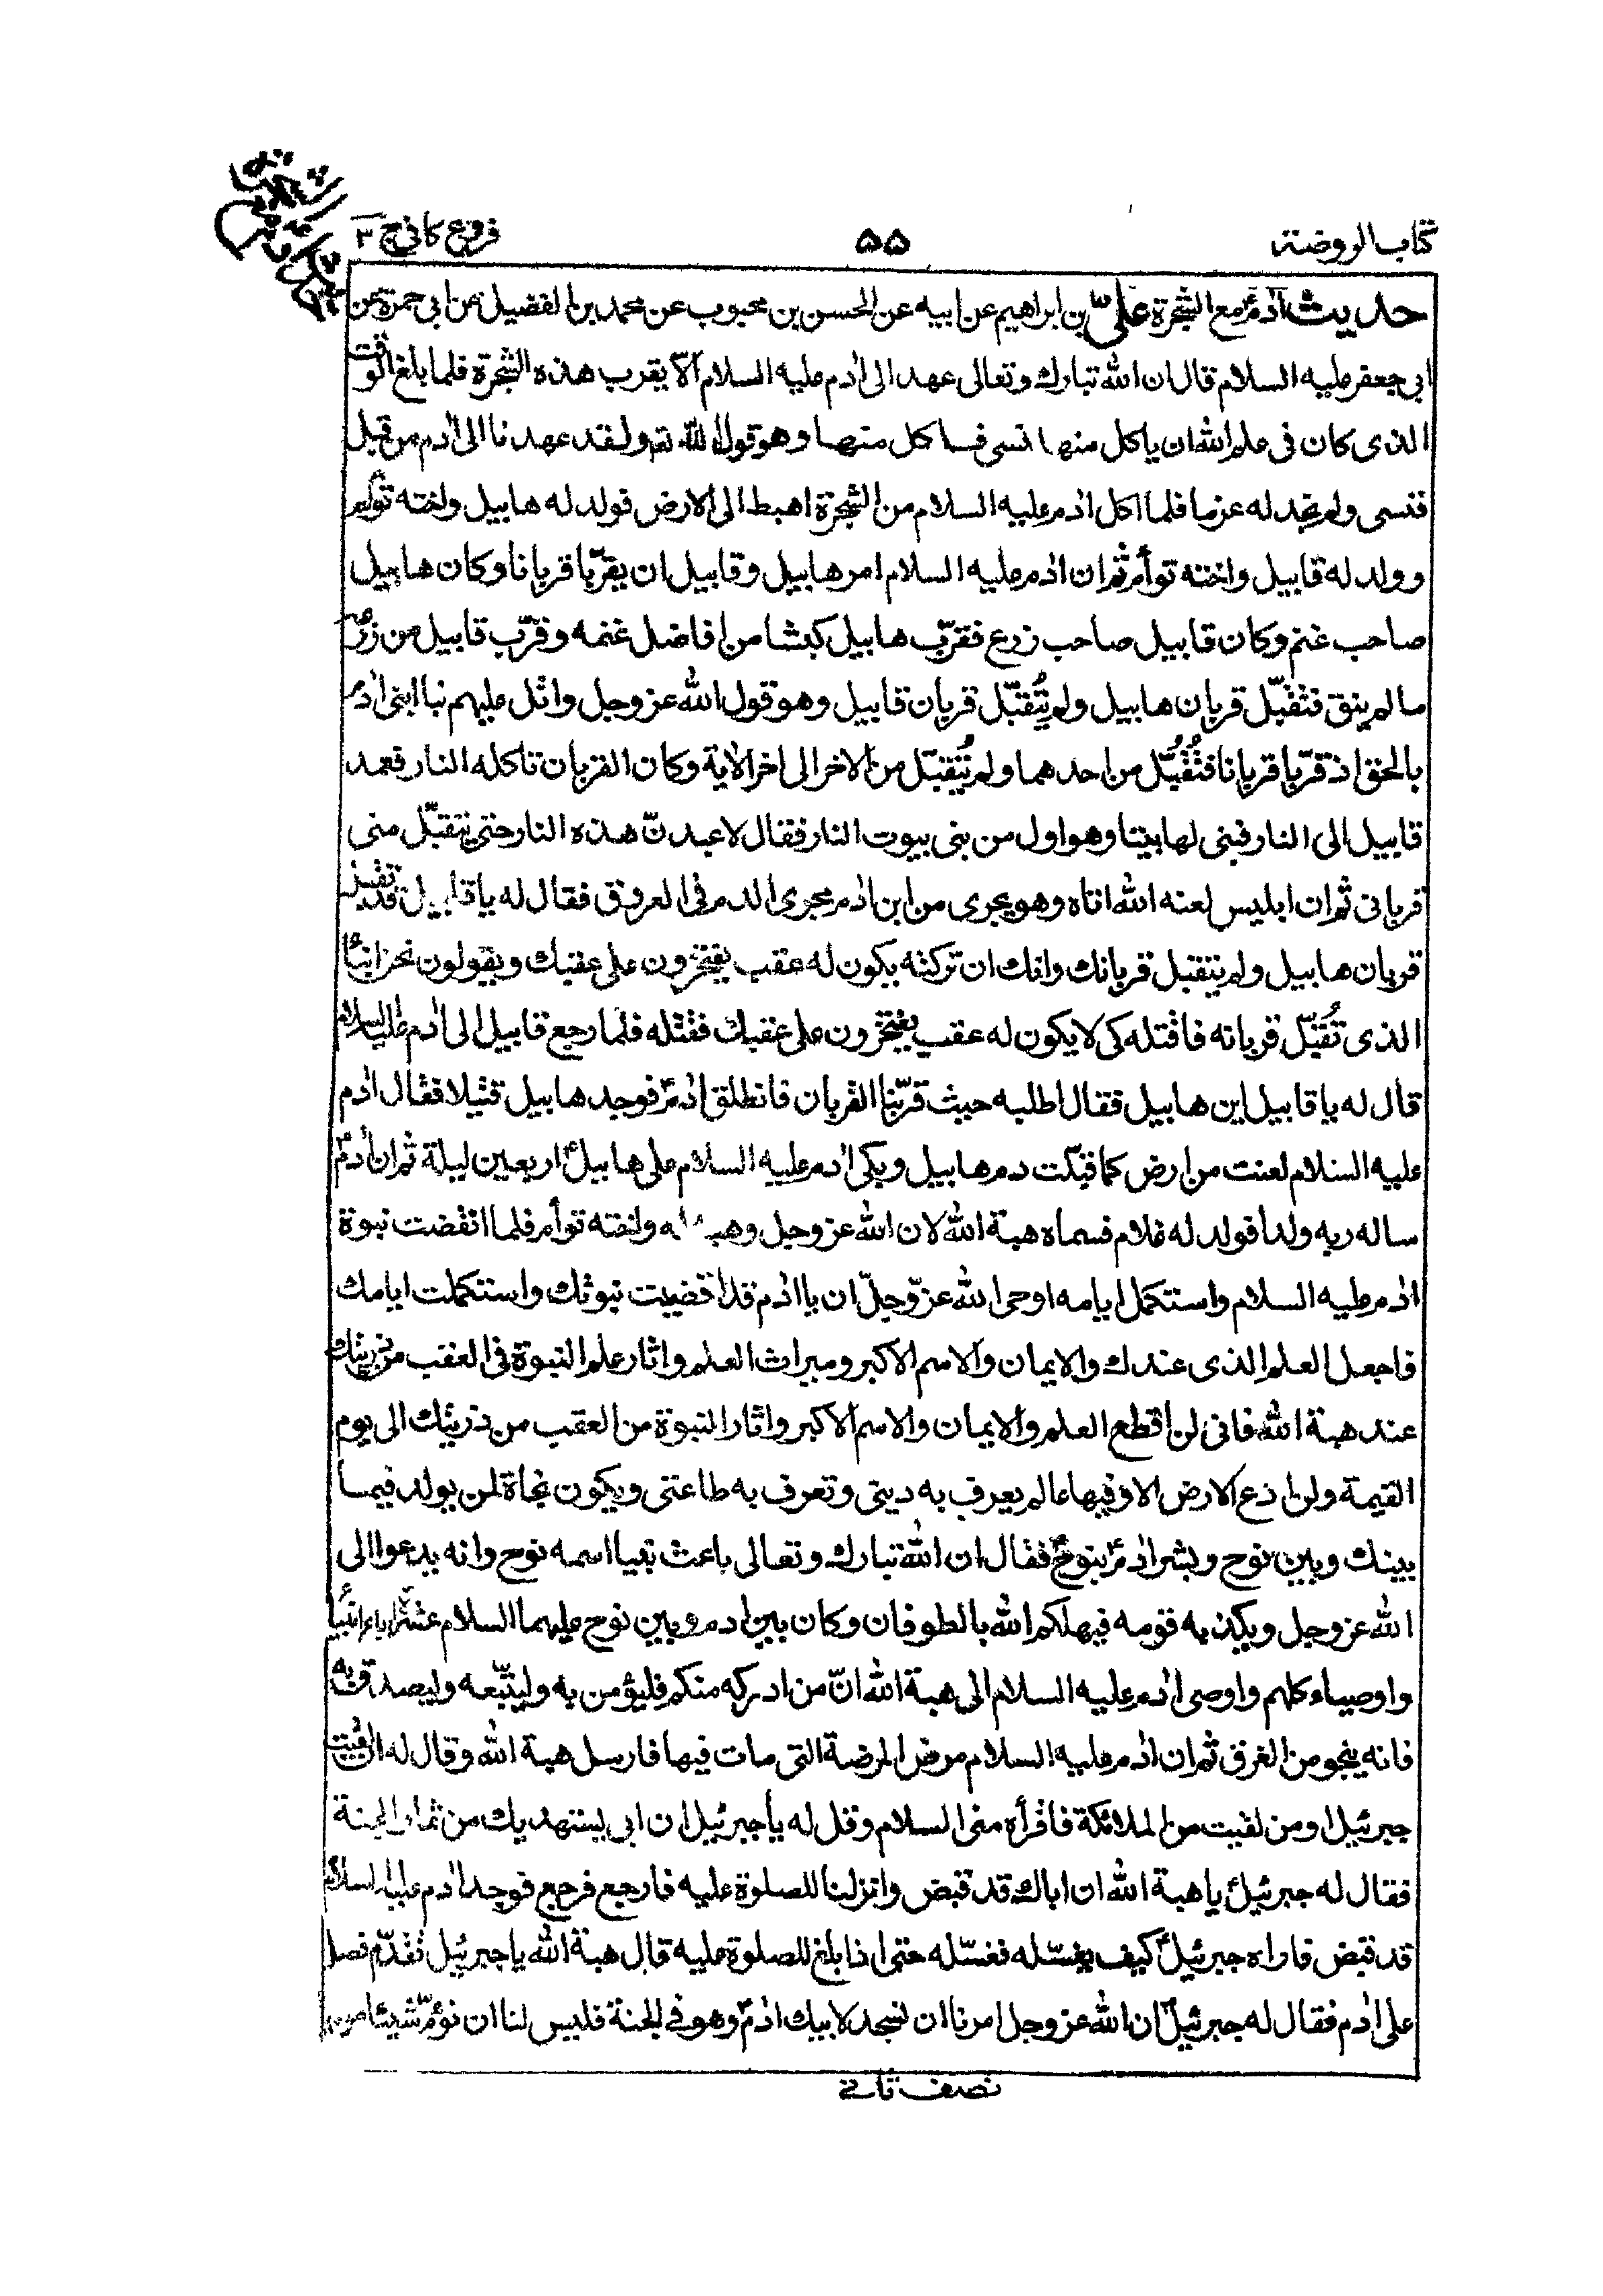 كتاب الروضة ۵۵ فروع كافي ج ٣
حديث اٰدمؑ مع الشجرة علیّ بن ابراهيم عن ابيه عن الحسن بن محبوب عن محمد بن الفضيل عن ابي حمزة عن
ابي جعفر عليه السلام قال ان الله تبارك وتعالى عهد الى اٰدم عليه السلام الّا يقرب هذه الشجرة فلما بلغ الوقت
الذى كان فى علم الله ان ياكل منها نسى فاكل منها وهو قول الله تع ولقد عهدنا الى اٰدم من قبل
فنسى ولم نجد له عزما فلما اكل اٰدم عليه السلام من الشجرة اهبط الى الارض فولد له هابيل واخته توأم
وولد له قابيل واخته توأم ثم ان اٰدم عليه السلام امر هابيل وقابيل ان يقرّبا قربانا وكان هابيل
صاحب غنم وكان قابيل صاحب زرع فقرّب هابيل كبشا من افاضل غنمه وقرّب قابيل من زرعه
ما لم ينق فتُقُبّل قربان هابيل ولم يُتقبّل قربان قابيل وهو قول الله عز وجل واتل عليهم نبا ابنى اٰدم
بالحق اذ قرّبا قربانا فتُقُبّل من احدهما ولم يُتقبّل من الاخر الى اخر الاٰية وكان القربان تاكله النار فعمد
قابيل الى النار فبنى لها بيتا وهو اول من بنى بيوت النار فقال لاعبدنّ هذه النار حتى يتقبّل منى
قربانى ثم ان ابليس لعنه الله اتاه وهو يجرى من ابن اٰدم مجرى الدم فى العروق فقال له يا قابيل قد تقبل
قربان هابيل ولم يتقبل قربانك وانك ان تركته يكون له عقب يفتخرون على عقبك ويقولون نحن ابناء
الذى تُقبّل قربانه فاقتله كى لا يكون له عقب يفتخرون على عقبك فقتله فلما رجع قابيل الى اٰدم عليه السلام
قال له يا قابيل اين هابيل فقال اطلبه حيث قرّبنا القربان فانطلق اٰدمؑ فوجد هابيل قتيلا فقال اٰدم
عليه السلام لعنت من ارض كما قبلت دم هابيل وبكى اٰدم عليه السلام على هابيلؑ اربعين ليلة ثم ان اٰدمؑ
ساله ربه ولدا فولد له غلام فسماه هبة الله لان الله عز وجل وهبه له واخته توأم فلما انقضت نبوة
اٰدم عليه السلام واستكمل ايامه اوحى الله عزّ وجلّ ان يا اٰدم قد انقضيت نبوتك واستكملت ايامك
فاجعل العلم الذى عندك والايمان والاسم الاكبر وميراث العلم واثار علم النبوة فى العقب من ذريتك
عند هبة الله فانى لن اقطع العلم والايمان والاسم الاكبر واثار النبوة من العقب من ذريتك الى يوم
القيمة ولن ادع الارض الا وفيها عالم يعرف به دينى وتعرف به طاعتى ويكون نجاة لمن يولد فيما
بينك وبين نوح وبشر اٰدمؑ بنوحؑ فقال ان الله تبارك وتعالى باعث نبيا اسمه نوح وانه يدعوا الى
الله عز وجل ويكذبه قومه فيهلكهم الله بالطوفان وكان بين اٰدم وبين نوح عليهما السلام عشرة اباء انبياء
واوصياء كلهم واوصى اٰدم عليه السلام الى هبة الله انّ من ادركه منكم فليؤمن به وليتّبعه وليصدق به
فانه ينجو من الغرق ثم ان اٰدم عليه السلام مرض المرضة التى مات فيها فارسل هبة الله وقال له ان لقيت
جبرئيل او من لقيت من الملائكة فاقرأه منى السلام وقل له يا جبرئيل ان ابى يستهديك من ثمار الجنة
فقال له جبرئيلؑ يا هبة الله ان اباك قد قبض وانزلنا للصلوة عليه فارجع فرجع فوجد اٰدم عليه السلام
قد قبض فاراه جبرئيلؑ كيف يغسّله فغسّله حتى اذا بلغ للصلوة عليه قال هبة الله يا جبرئيل تقدّم فصل
على اٰدم فقال له جبرئيلؑ ان الله عز وجل امرنا ان نسجد لابيك اٰدمؑ وهو فى الجنة فليس لنا ان نؤمّ شيئا من
نصف ثانى